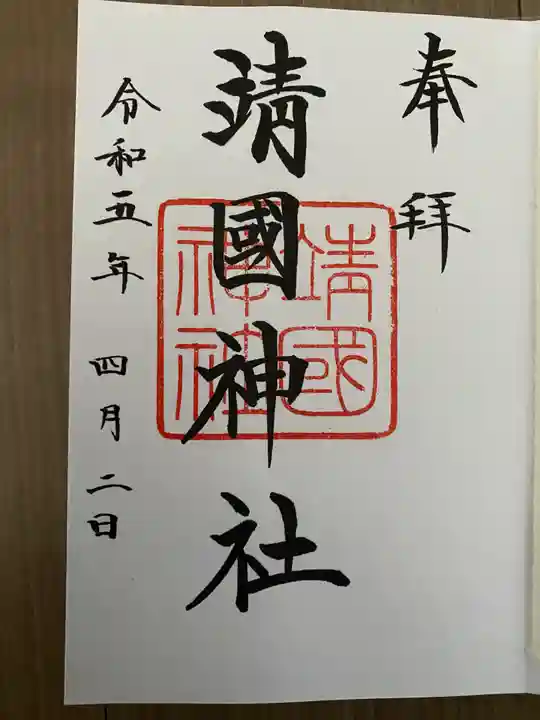 奉拝
靖國神社
靖國
神社
令和五年 四月二日